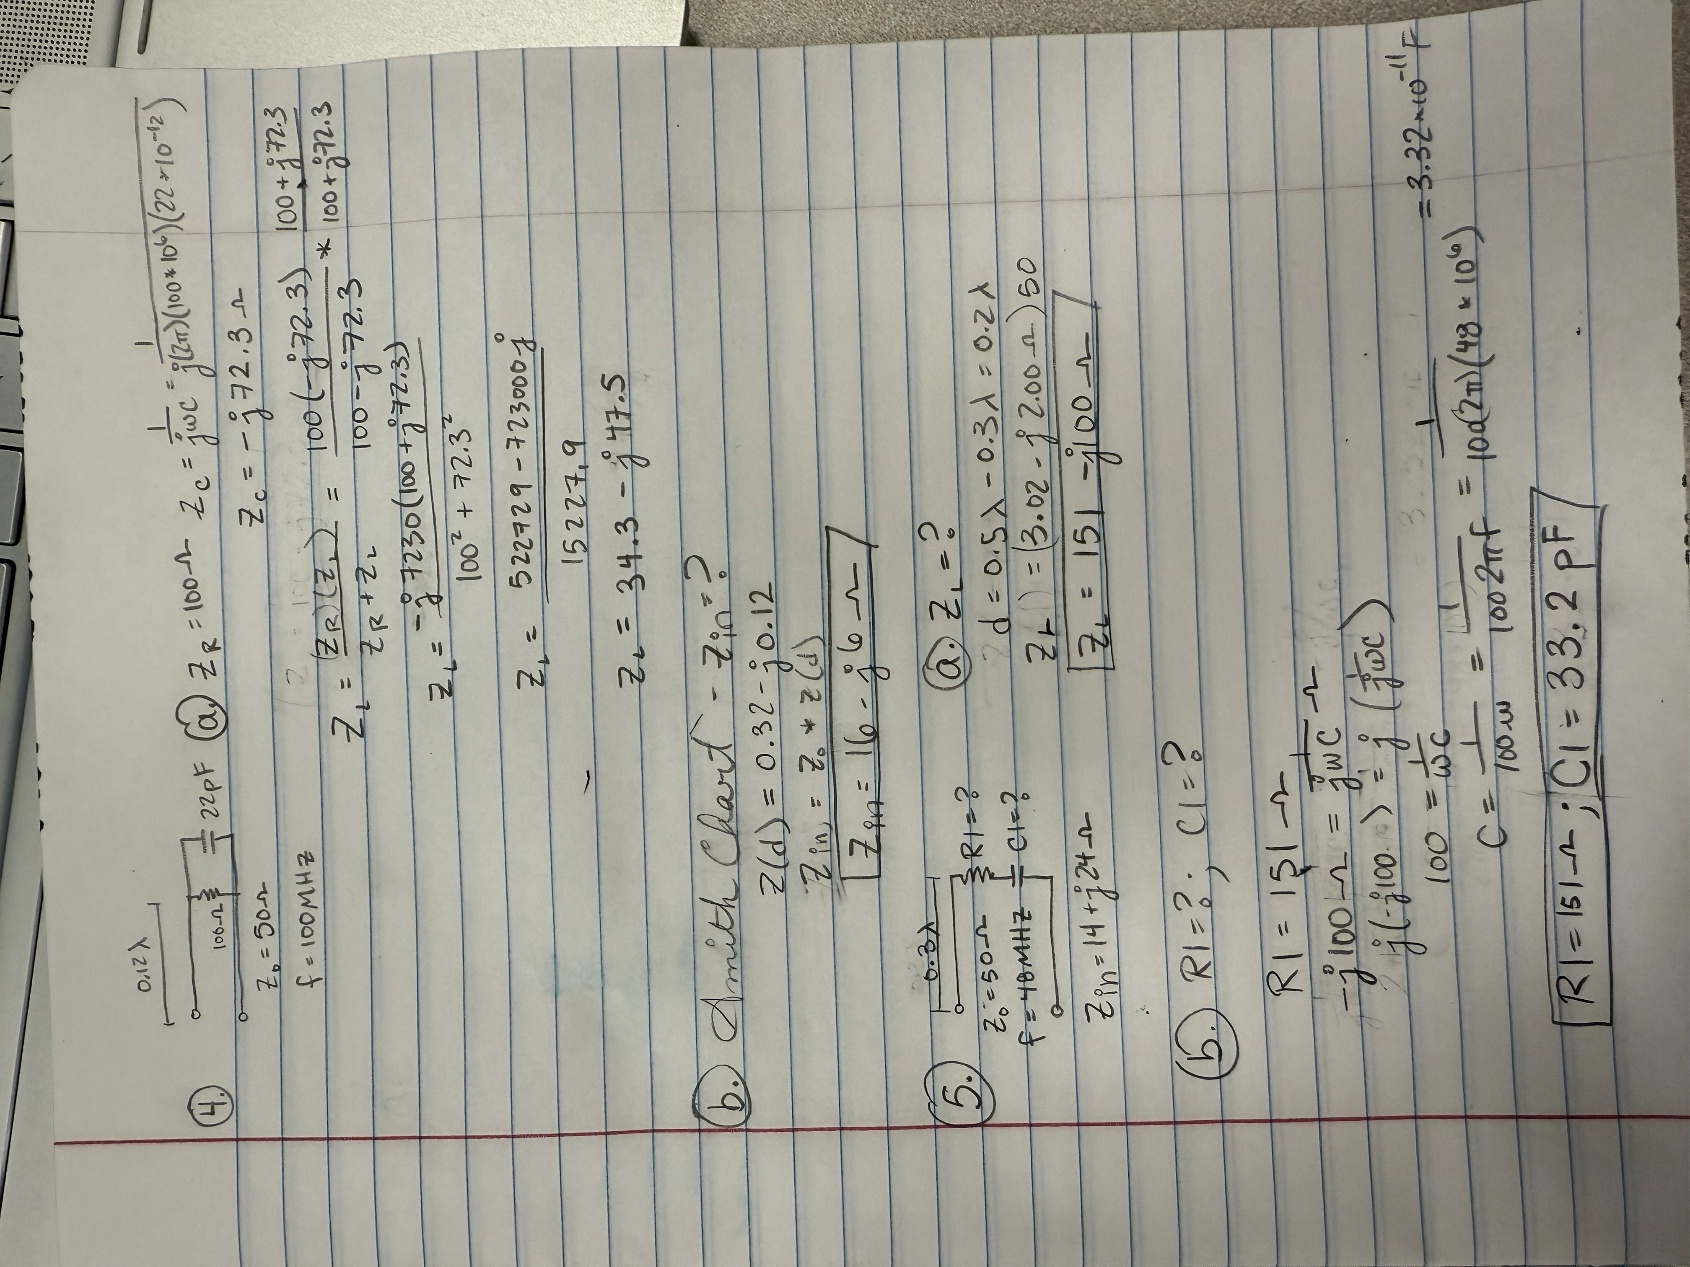 0.12λ
4.
100Ω
22pF
Z₀ = 50Ω
f = 100MHz
a. Z_R = 100Ω Z_C = 1/jωC = 1/(j(2π)(100*10⁶)(22*10⁻¹²))
Z_C = -j72.3Ω
Z_L = (Z_R)(Z_L)/(Z_R + Z_L) = 100(-j72.3)/(100 - j72.3) * (100 + j72.3)/(100 + j72.3)
Z_L = -j7230(100 + j72.3)/(100² + 72.3²)
Z_L = (522729 - 723000j)/15227.9
Z_L = 34.3 - j47.5
b. Smith Chart - Zin = ?
Z(d) = 0.32 - j0.12
Zin = Z₀ * Z(d)
Zin = 16 - j6Ω
5.
0.3λ
R1 = ?
Z₀ = 50Ω
C1 = ?
f = 48MHZ
Zin = 14 + j24Ω
a. Z_L = ?
d = 0.5λ - 0.3λ = 0.2λ
Z_L() = (3.02 - j2.00Ω)50
Z_L = 151 - j100Ω
b. R1 = ?; C1 = ?
R1 = 151Ω
-j100Ω = 1/jωC Ω
j(-j100) = j(1/jωC)
100 = 1/ωC
C = 1/100ω = 1/100 2πF = 1/(100(2π)(48*10⁶)) = 3.32*10⁻¹¹F
R1 = 151Ω; C1 = 33.2pF